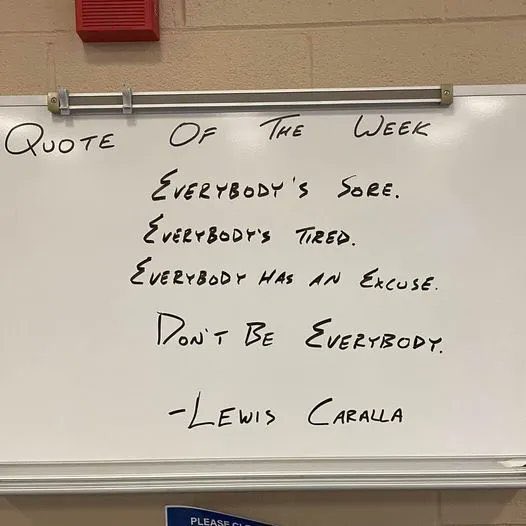 QUOTE OF THE WEEK
EVERYBODY'S SORE.
EVERYBODY'S TIRED.
EVERYBODY HAS AN EXCUSE.
DON'T BE EVERYBODY.
-LEWIS CARALLA
PLEASE